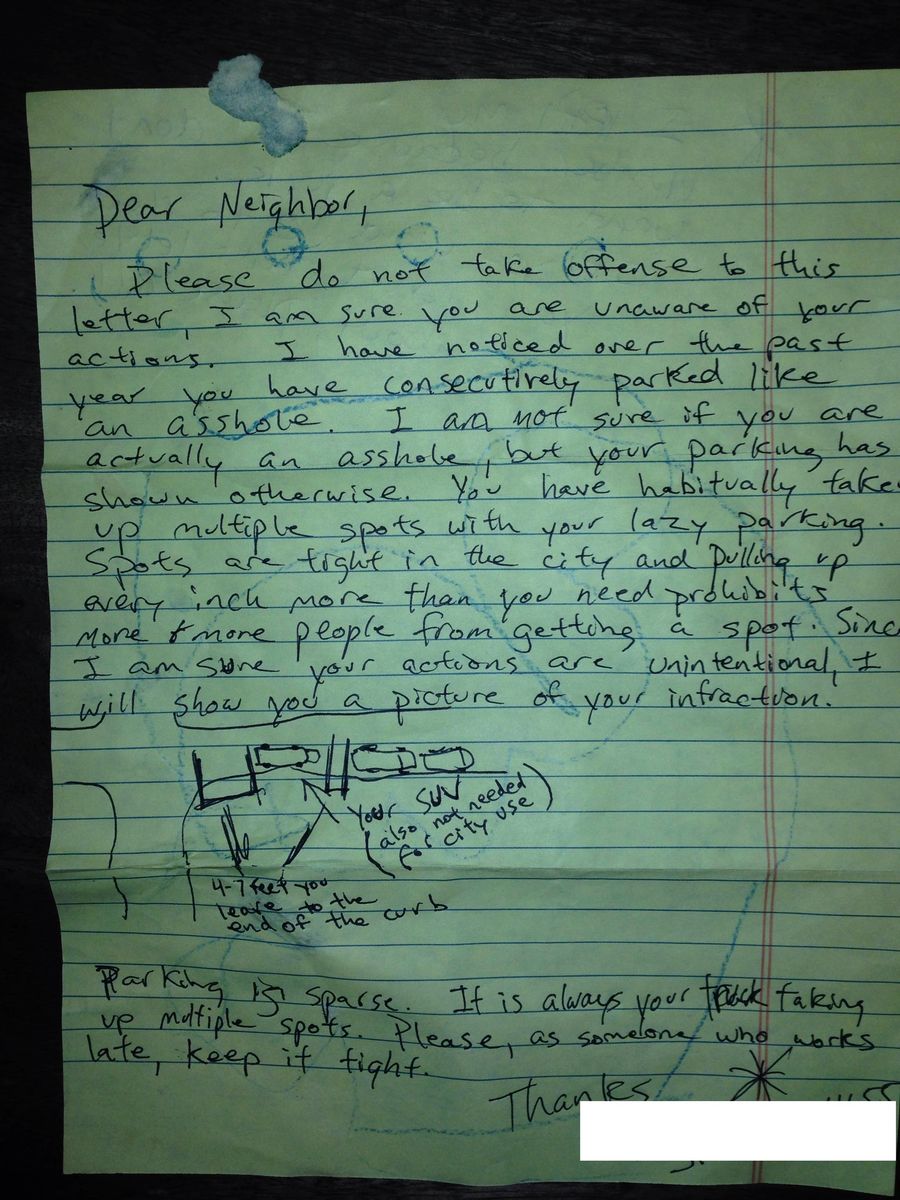 Dear Neighbor,
Please do not take offense to this
letter, I am sure you are unaware of your
actions. I have noticed over the past
year you have consecutively parked like
an asshole. I am not sure if you are
actually an asshole, but your parking has
shown otherwise. You have habitually take
up multiple spots with your lazy parking.
Spots are tight in the city and pulling up
every inch more than you need prohibits
more & more people from getting a spot. Sinc
I am sure your actions are unintentional, I
will show you a picture of your infraction.
Your SUV
(also not needed
for city use)
4-7 feet you
leave to the
end of the curb
Parking is sparse. It is always your truck taking
up multiple spots. Please, as someone who works
late, keep it tight.
Thanks